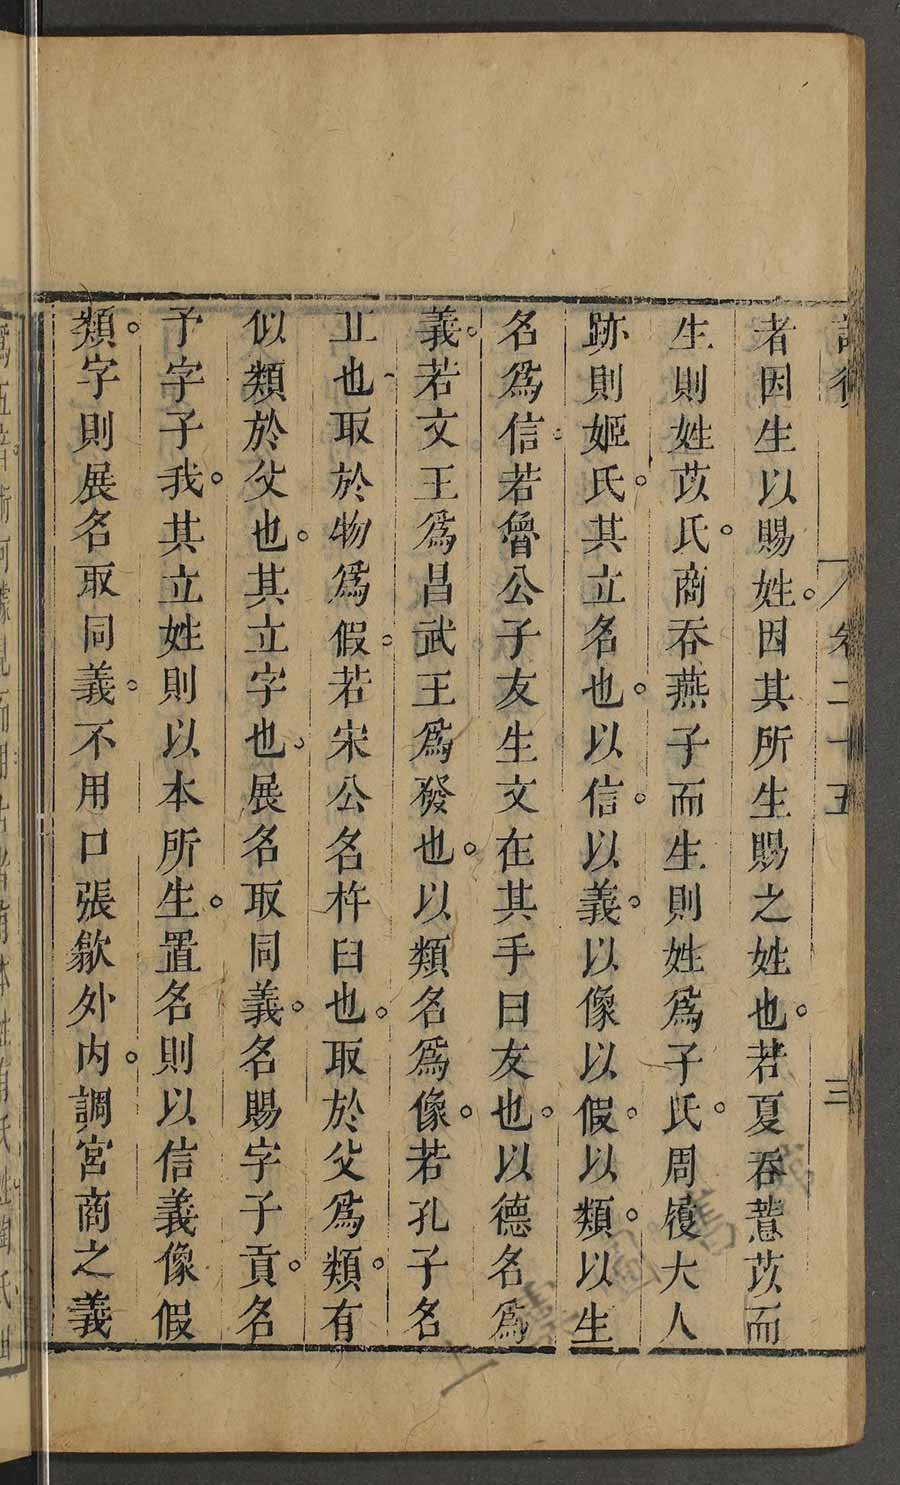 卷二十五
三
者因生以賜姓。因其所生賜之姓也。若夏吞薏苡而
生則姓苡氏。商吞燕子而生則姓爲子氏。周履大人
跡則姬氏。其立名也。以信。以義。以像以假。以類。以生
名爲信。若魯公子友生文在其手曰友也。以德名爲
義。若文王爲昌武王爲發也。以類名爲像。若孔子名
丘也取於物爲假。若宋公名杵臼也。取於父爲類。有
似類於父也。其立字也。展名取同義。名賜字子貢。名
予字子我。其立姓則以本所生。置名則以信義像假
類。字則展名取同義。不用口張歙外內。調宮商之義